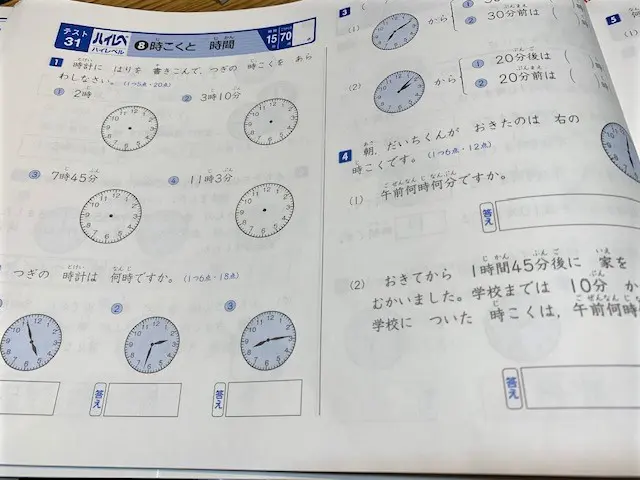 テスト 31 ハイレベ ハイレベル ⑧ 時こくと 時間
15分 70点 点
1 時計に はりを 書きこんで, つぎの 時こくを あら
わしなさい。(1つ5点・20点)
① 2時 ② 3時10分
③ 7時45分 ④ 11時3分
つぎの 時計は 何時ですか。(1つ6点・18点)
② ③
答え 答え
3
(1) から
② 30分前は ( )
(2) から
① 20分後は ( )時
② 20分前は ( )時
4 朝, だいちくんが おきたのは 右の
時こくです。(1つ6点・12点)
(1) 午前何時何分ですか。
答え
(2) おきてから 1時間45分後に 家を
むかいました。学校までは 10分 か
学校に ついた 時こくは, 午前何時
答え
5
(1)